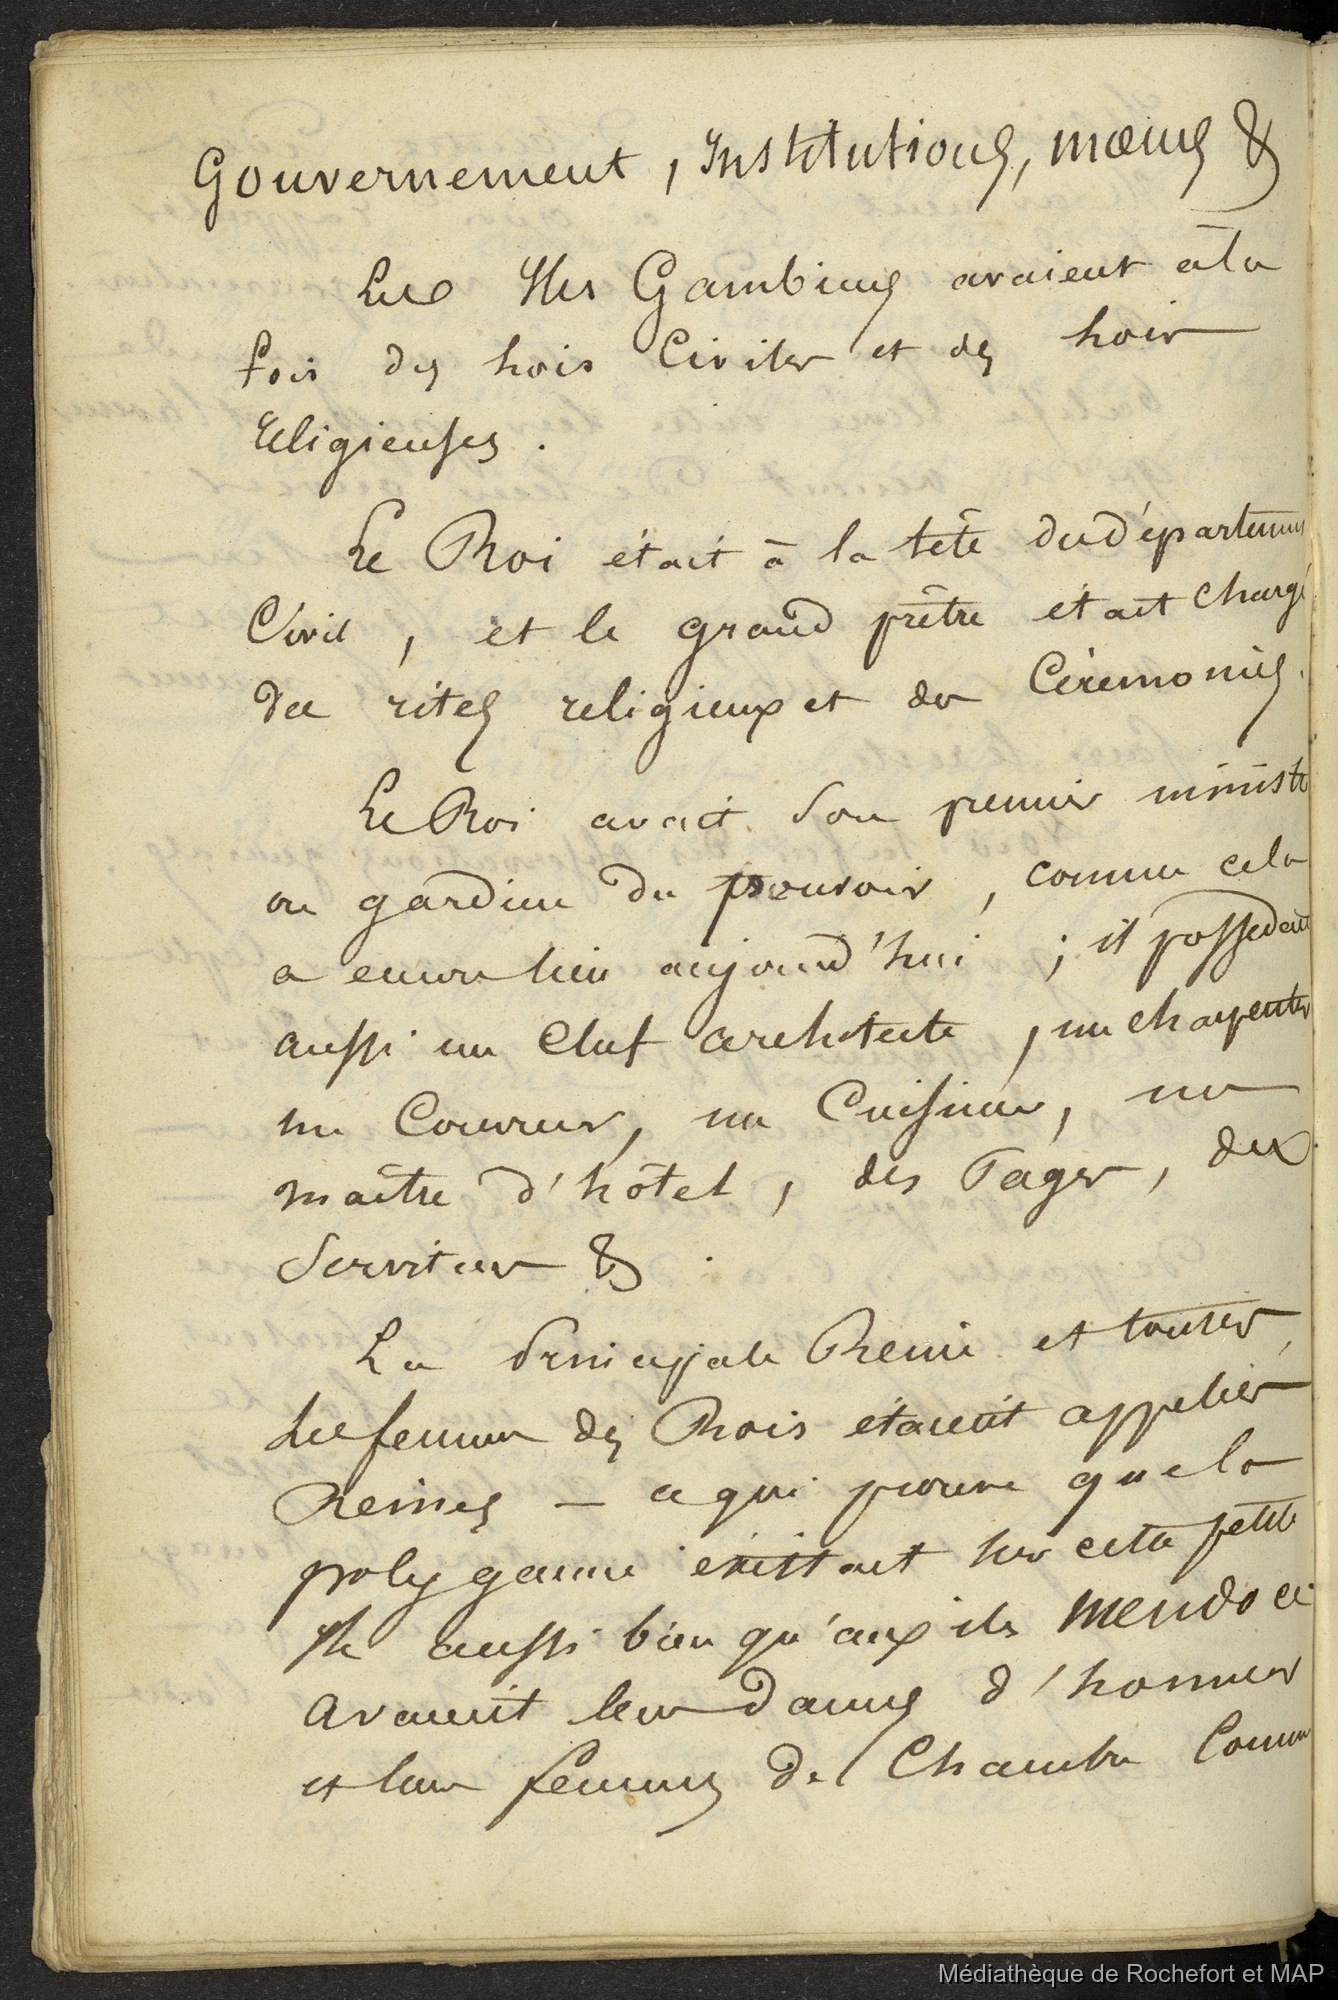 Gouvernement, Institutions, mœurs &
Les Iles Gambiers avaient à la
fois des lois Civiles et des lois
Religieuses.
Le Roi était à la tête du département
Civil, et le grand prêtre était chargé
des rites religieux et des Cérémonies.
Le Roi avait son premier ministre
ou gardien du pouvoir, comme cela
a encore lieu aujourd'hui ; il possédait
aussi un Chef architecte, un charpentier
un Couvreur, un Cuisinier, un
maître d'hôtel, des Pages, des
Serviteurs & .
La Principale Reine et toutes
les femmes des Rois étaient appelées
Reines — ce qui prouve que la
polygamie existait sur cette petite
Ile aussi bien qu'aux iles
avaient leurs Dames d'honneur
et leurs femmes de Chambre Comme
Médiathèque de Rochefort et MAP